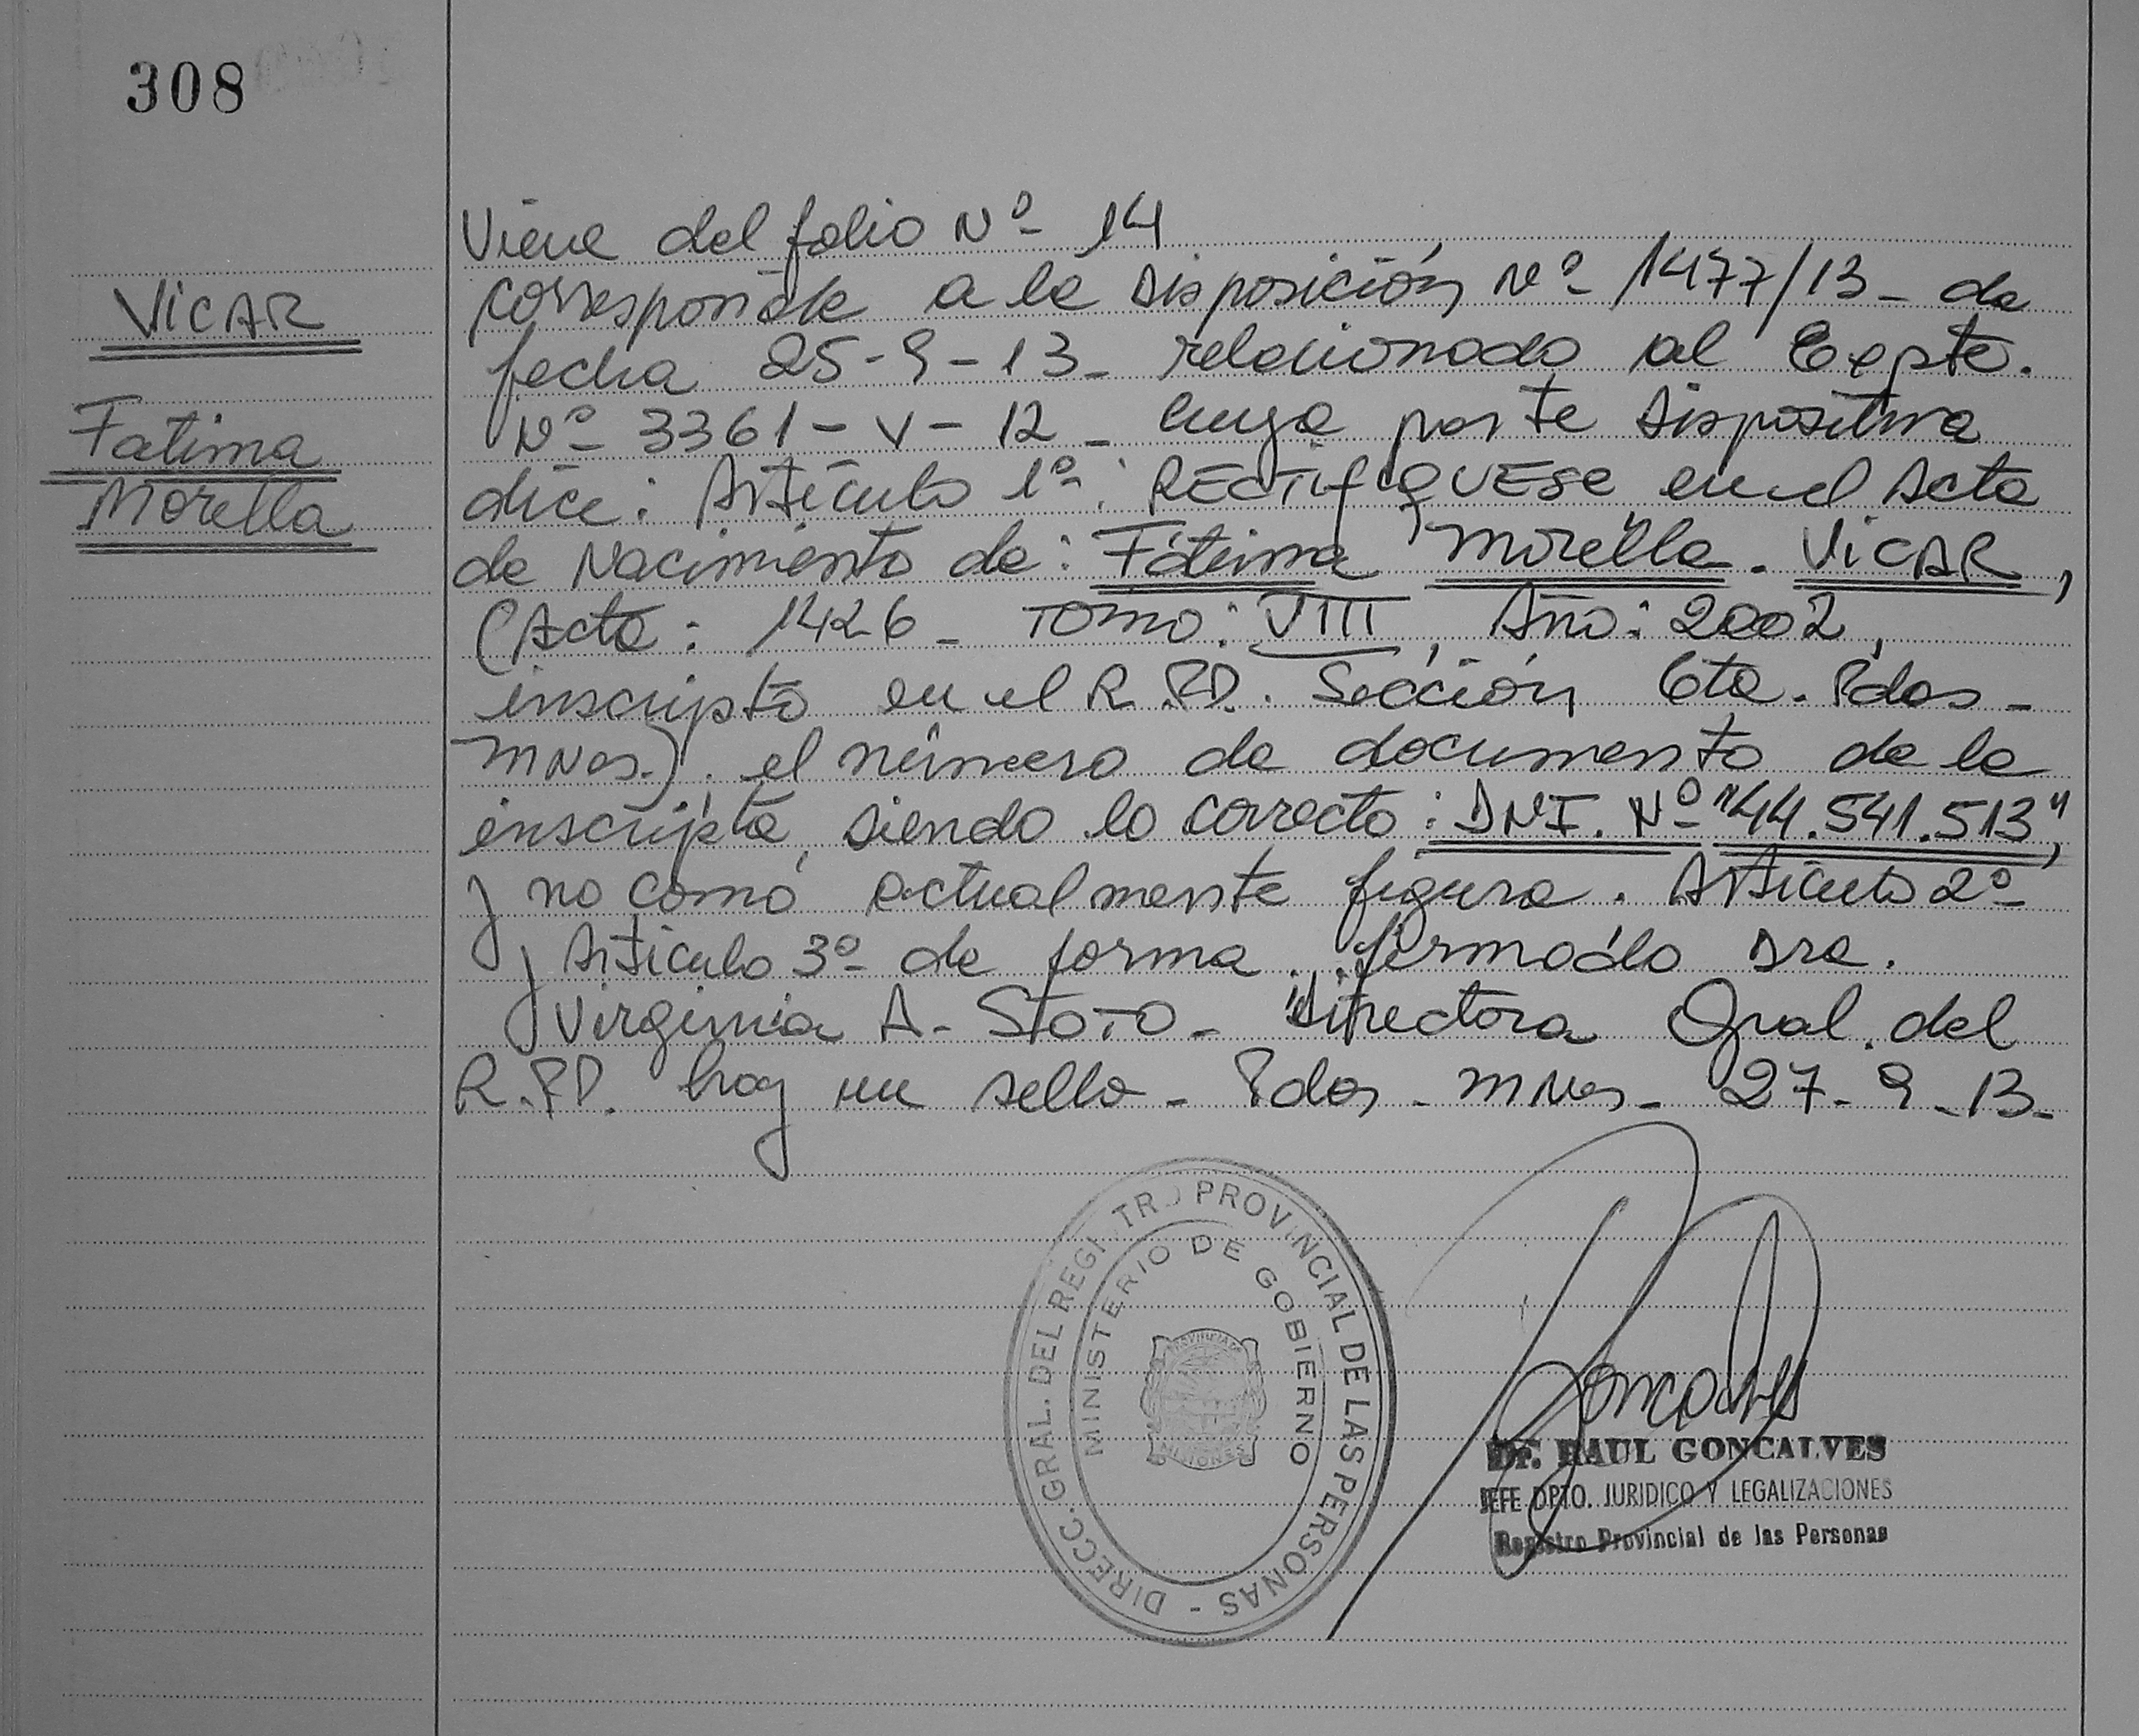 308
VICAR
Fatima
Morella
Viene del folio Nº 14
corresponde a la Disposición Nº 1477/13 - de
fecha 25-9-13 - relacionado al Expte.
Nº 3361 - V - 12 - cuya parte dispositiva
dice: Artículo 1º: RECTIFIQUESE en el Acta
de Nacimiento de: Fátima Morella. VICAR,
(Acta: 1426 - Tomo: VIII, Año: 2002,
inscripto en el R.P.P. Sección 6ta. Pdas -
MNes.). el número de documento de la
inscripta, siendo lo correcto: DNI. Nº "44.541.513",
y no como actualmente figura. Artículo 2º
y Artículo 3º de forma. firmado Dra.
Virginia A. - Directora Gral. del
R.P.P. hay un sello - Pdas - MNes - 27 - 9 - 13 -
DIRECC. GRAL. DEL REGISTRO PROVINCIAL DE LAS PERSONAS -
MINISTERIO DE GOBIERNO
PROVINCIA DE
MISIONES
Goncalves
Dr. RAUL GONCALVES
JEFE DPTO. JURIDICO Y LEGALIZACIONES
Registro Provincial de las Personas